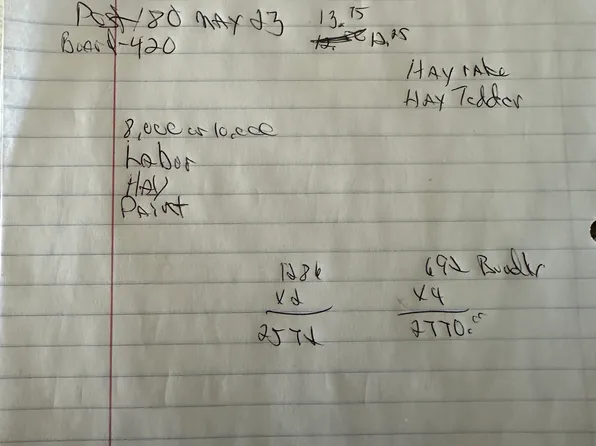 Post-180 MAY 23 13.75
Board-420 12.25
HAY rake
HAY Tedder
8,000 or 10,000
Labor
HAY
PAint
1286 692 Bundler
x2 x4
2572 2770.00